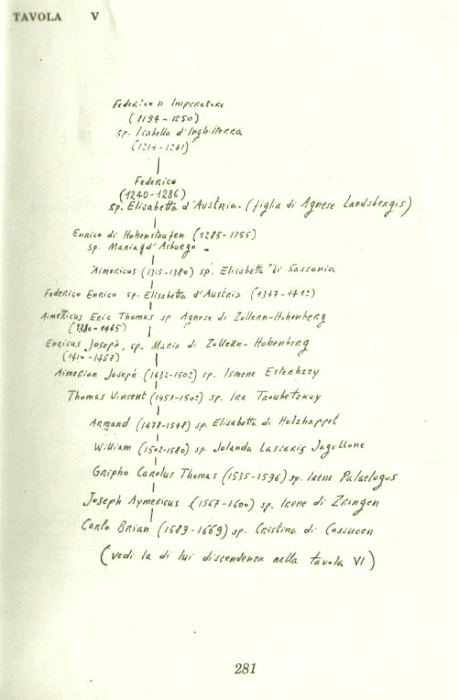 TAVOLA V
Federico II Imperatore
(1194-1250)
sp. Isabella d'Inghilterra
(1214-1241)
Federico
(1240-1286)
sp. Elisabetta d'Austria. (figlia di Agnese Landsbergis)
Enrico di Hohenstaufen (1285-1355)
sp. Maria d'Asburgo
Aimericus (1315-1380) sp. Elisabetta di Sassonia
Federico Enrico sp. Elisabetta d'Austria (1347-1412)
Aimericus Eric Thomas sp Agnese di Zollern-Hohenberg
Enricus Joseph, sp. Maria di Zollern-Hohenberg
(1410-1457)
Aimerian Joseph (1432-1502) sp. Ismene Esterhazy
Thomas Vincent (1457-1502) sp. Ira Troubetzkoy
Armand (1478-1548) sp. Elisabetta di Holzhappel
William (1502-1580) sp. Jolanda Lascaris Jagellone
Gripho Carolus Thomas (1535-1596) sp. Irene Paleologus
Joseph Aymericus (1567-1600) sp. Irene di Zringen
Carlo Brian (1589-1669) sp. Cristina di
(vedi la di lui discendenza nella tavola VI)
281